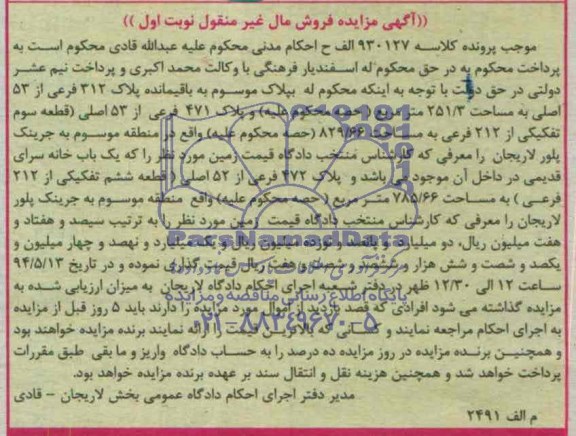 ((آگهی مزایده فروش مال غیر منقول نوبت اول ))
موجب پرونده کلاسه ۹۳۰۱۲۷ الف ح احکام مدنی محکوم علیه عبدالله قادی محکوم است به
پرداخت محکوم به در حق محکوم له اسفندیار فرهنگی با وکالت محمد اکبری و پرداخت نیم عشر
دولتی در حق دولت با توجه به اینکه محکوم له بپلاک موسوم به باقیمانده پلاک ۳۱۲ فرعی از ۵۳
اصلی به مساحت ۲۵۱/۳ متر مربع (حصه محکوم علیه) و پلاک ۴۷۱ فرعی از ۵۳ اصلی (قطعه سوم
تفکیکی از ۲۱۲ فرعی به مساحت ۸۲۹/۶۶ (حصه محکوم علیه) واقع در منطقه موسوم به جرینک
پلور لاریجان را معرفی که کارشناس منتخب دادگاه قیمت زمین مورد نظر را که یک باب خانه سرای
قدیمی در داخل آن موجود می باشد و پلاک ۴۷۲ فرعی از ۵۲ اصلی ( قطعه ششم تفکیکی از ۲۱۲
فرعی ) به مساحت ۷۸۵/۶۶ متر مربع ( حصه محکوم علیه) واقع منطقه موسوم به جرینک پلور
لاریجان را معرفی که کارشناس منتخب دادگاه قیمت زمین مورد نظر را به ترتیب سیصد و هفتاد و
هفت میلیون ریال، دو میلیارد و پانصد و نود میلیون ریال و یک میلیارد و نهصد و چهار میلیون و
یکصد و شصت و شش هزار و سیصد و شصت و هفت ریال قیمت گذاری نموده و در تاریخ ۹۴/۵/۱۳
ساعت ۱۲ الی ۱۲/۳۰ ظهر در دفتر شعبه اجرای احکام دادگاه لاریجان به میزان ارزیابی شده به
مزایده گذاشته می شود افرادی که قصد بازدید از اموال مورد مزایده را دارند باید ۵ روز قبل از مزایده
به اجرای احکام مراجعه نمایند و کسانی که بالاترین قیمت را ارائه نمایند برنده مزایده خواهند بود
و همچنین برنده مزایده در روز مزایده ده درصد را به حساب دادگاه واریز و ما بقی طبق مقررات
پرداخت خواهد شد و همچنین هزینه نقل و انتقال سند بر عهده برنده مزایده خواهد بود.
مدیر دفتر اجرای احکام دادگاه عمومی بخش لاریجان - قادی
م الف ۲۴۹۱
ParsNamadData
پایگاه اطلاع رسانی مناقصه و مزایده
۰۲۱-۸۸۳۴۹۶۷۰-۵